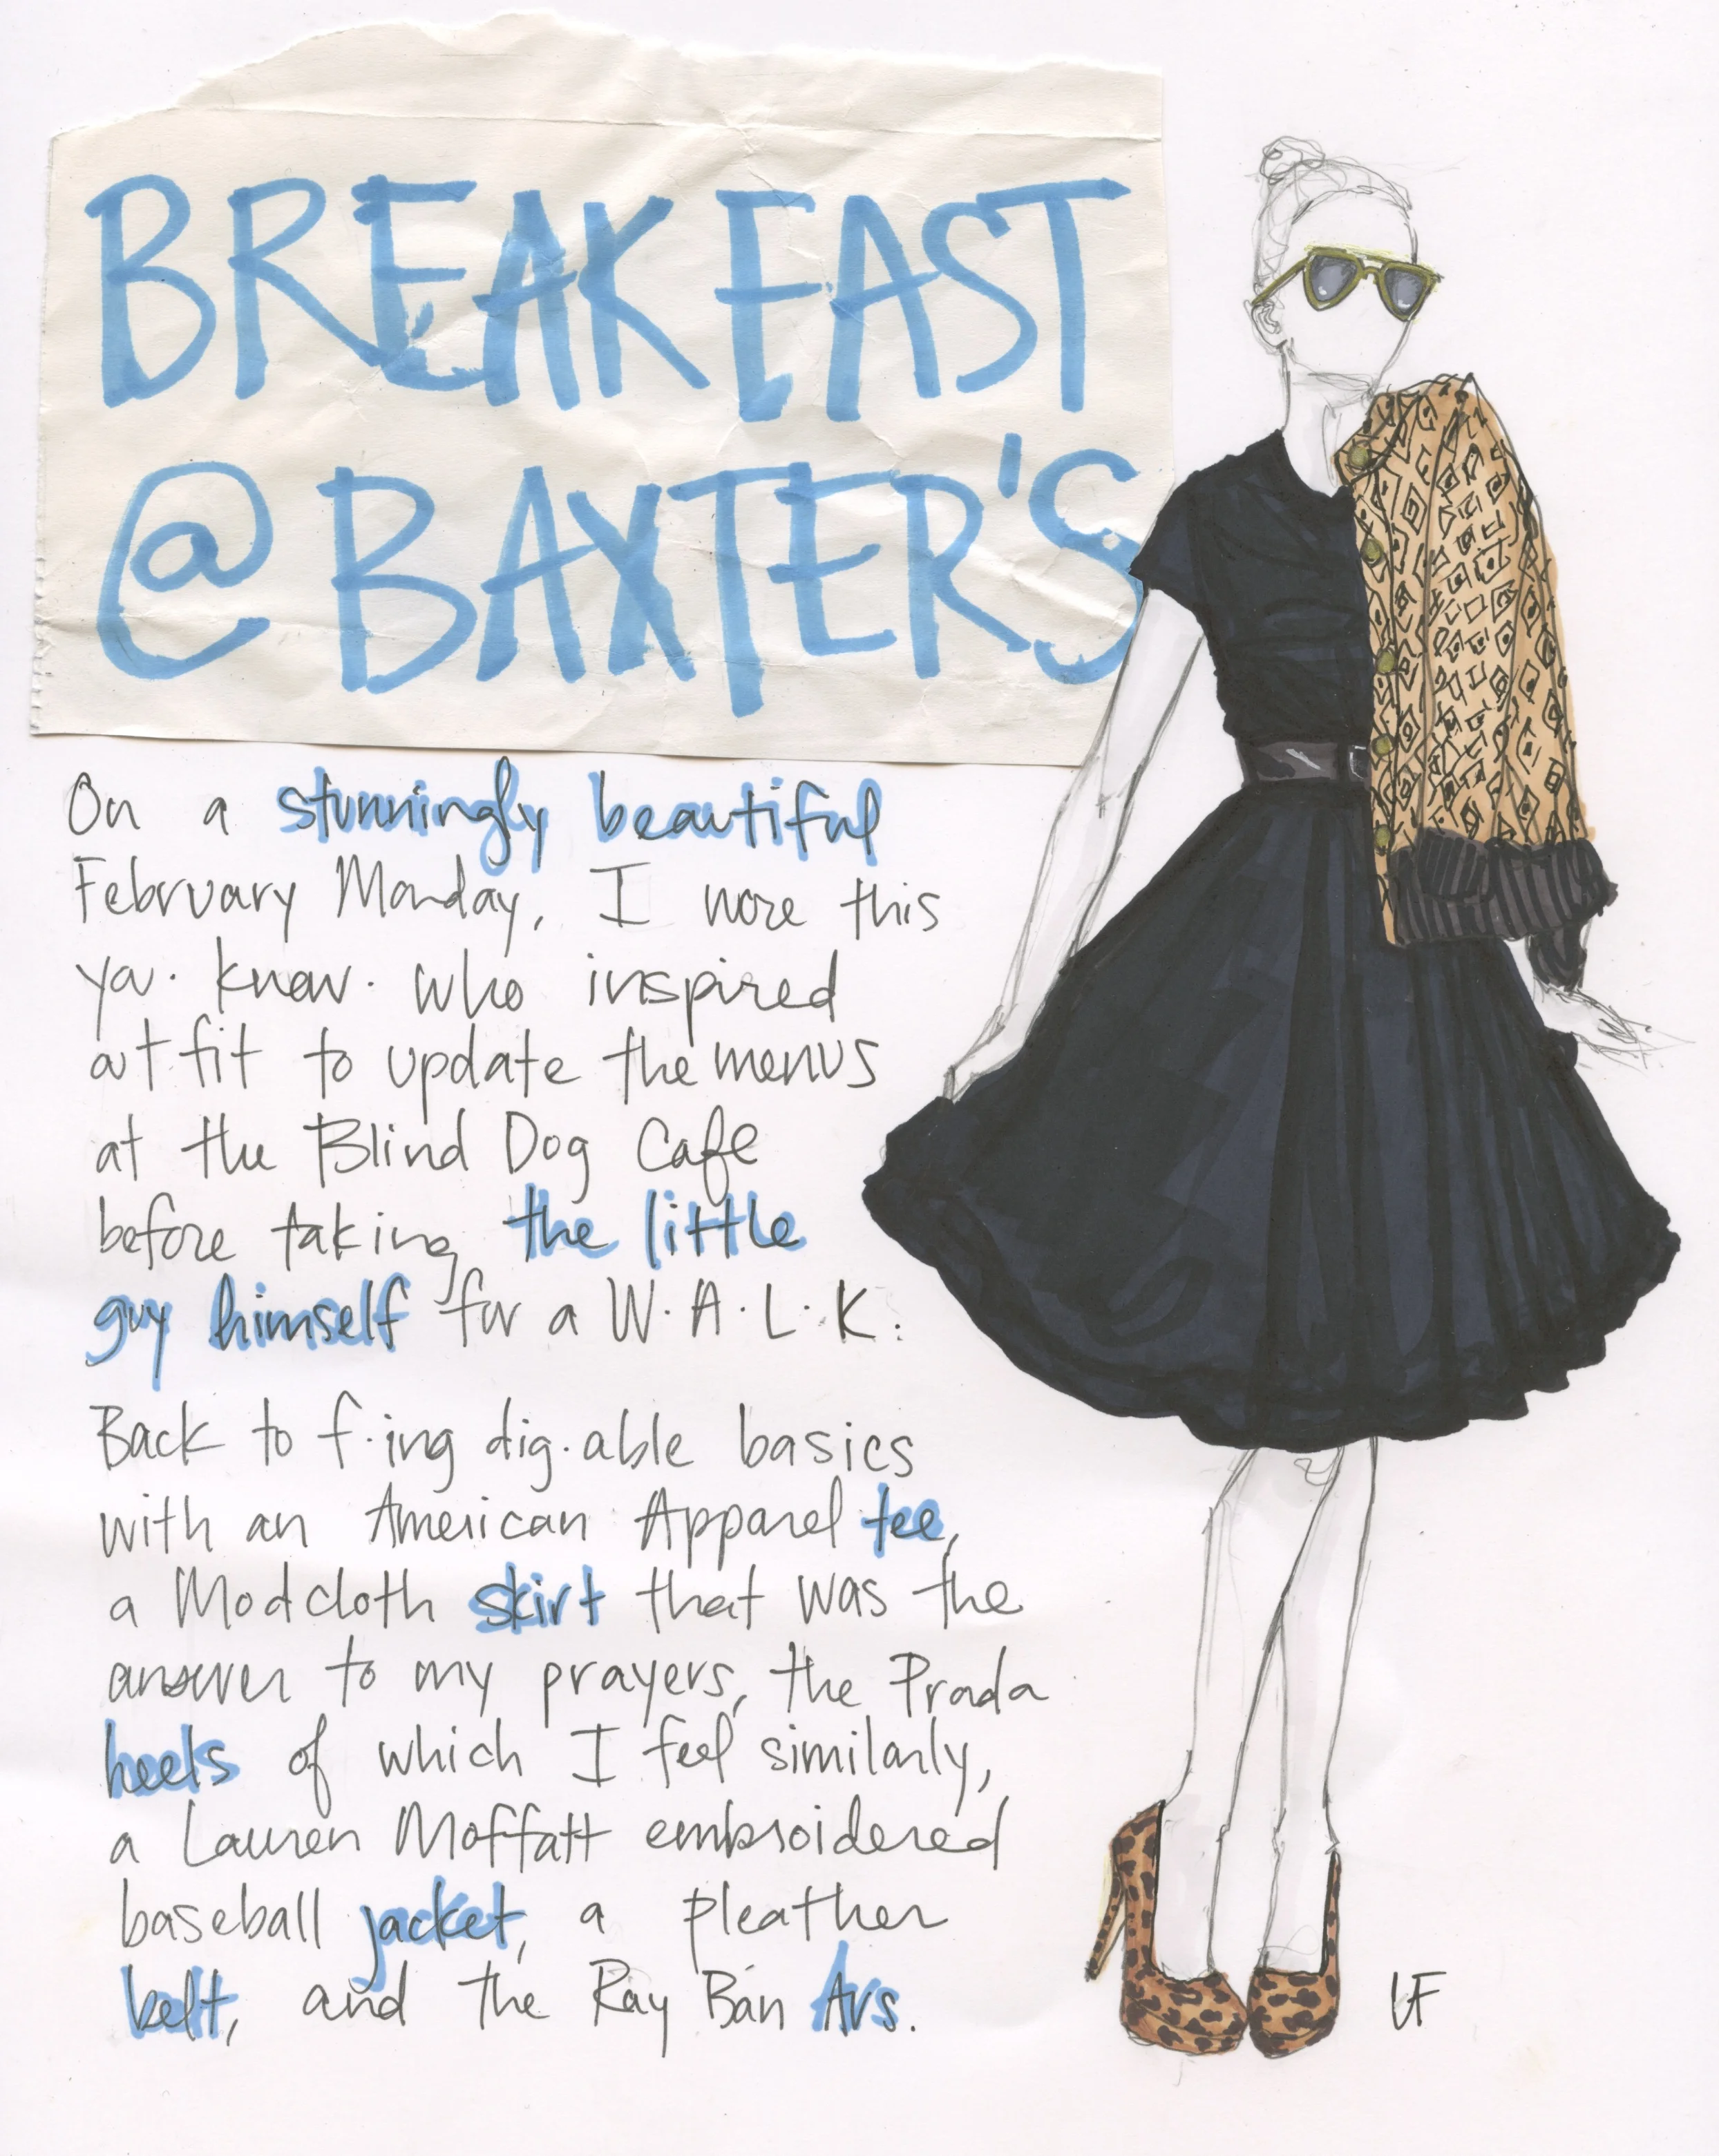 BREAKFAST
@ BAXTER'S
On a stunningly beautiful
February Monday, I wore this
you·know·who inspired
outfit to update the menus
at the Blind Dog Cafe
before taking the little
guy himself for a W·A·L·K.
Back to f·ing dig·able basics
with an American Apparel tee,
a Modcloth skirt that was the
answer to my prayers, the Prada
heels of which I feel similarly,
a Lauren Moffatt embroidered
baseball jacket, a pleather
belt, and the Ray Ban Avs.
LF